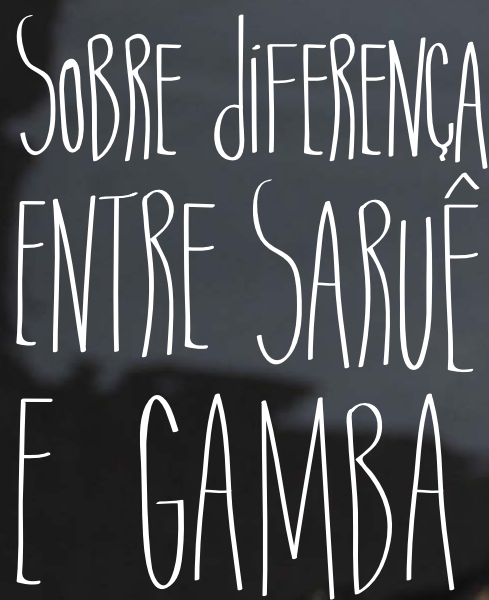 SOBRE diFERENÇA
ENTRE SARUÊ
E GAMBA